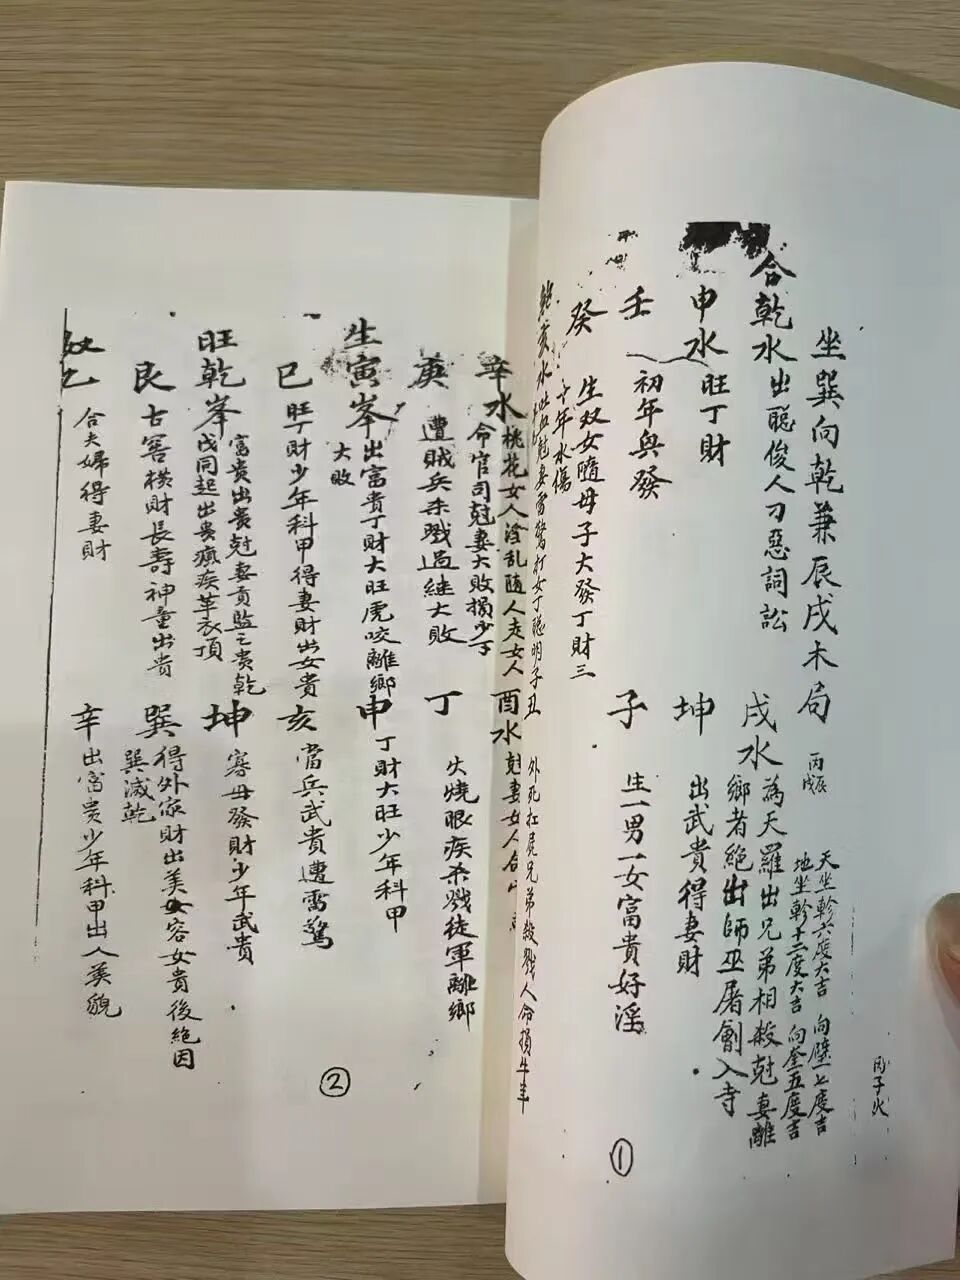 坐巽向乾兼辰戌木局
丙辰
丙戌
天坐軫六度大吉 向壁七度吉
地坐軫十二度大吉 向奎五度吉
丙子火
合乾水出聰俊人刁惡詞訟
戌水為天羅出兄弟相殺尅妻離
鄉者絕出師巫屠劊入寺
申水旺丁財
坤出武貴得妻財
壬初年興發
子生一男一女富貴好淫
癸生双女隨母子大發丁財三
十年水傷
亥水吐血尅妻雷驚打女丁聰明子丑
外死扛屍兄弟殺戮人命損牛羊
①
辛水桃花女人淫乱隨人走女人
命官司尅妻大敗損少丁
酉水尅妻女人
庚遭賊兵杀戮過継大敗
丁火燒眼疾杀戮徒軍離鄉
生寅峯出富貴丁財大旺虎咬離鄉
大敗
申丁財大旺少年科甲
巳旺丁財少年科甲得妻財出女貴
亥當兵武貴遭雷驚
旺乾峯富貴出貴尅妻貢監之貴乾
戌同起出貴瘋疾革衣頂
坤寡母發財少年武貴
艮古窖横財長壽神童出貴
巽得外家財出美女容女貴後絕因
巽滅乾
乙合夫婦得妻財
辛出富贵少年科甲出人美貌
②